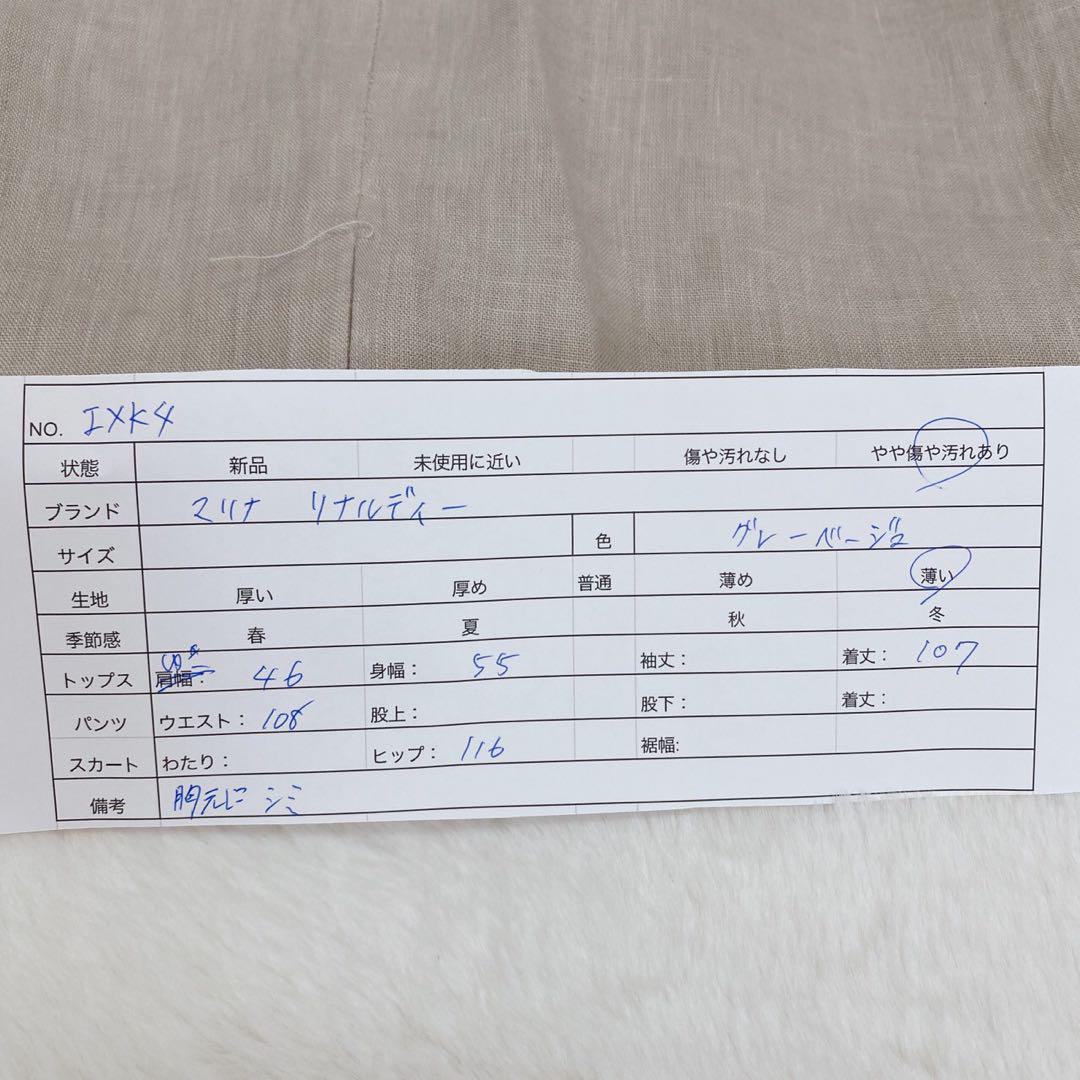 NO. IXK4
状態 新品 未使用に近い 傷や汚れなし やや傷や汚れあり
ブランド マリナ リナルディー
サイズ 色 グレーベージュ
生地 厚い 厚め 普通 薄め 薄い
季節感 春 夏 秋 冬
トップス 肩幅: 46 身幅: 55 袖丈: 着丈: 107
パンツ ウエスト: 108 股上: 股下: 着丈:
スカート わたり: ヒップ: 116 裾幅:
備考 胸元に シミ